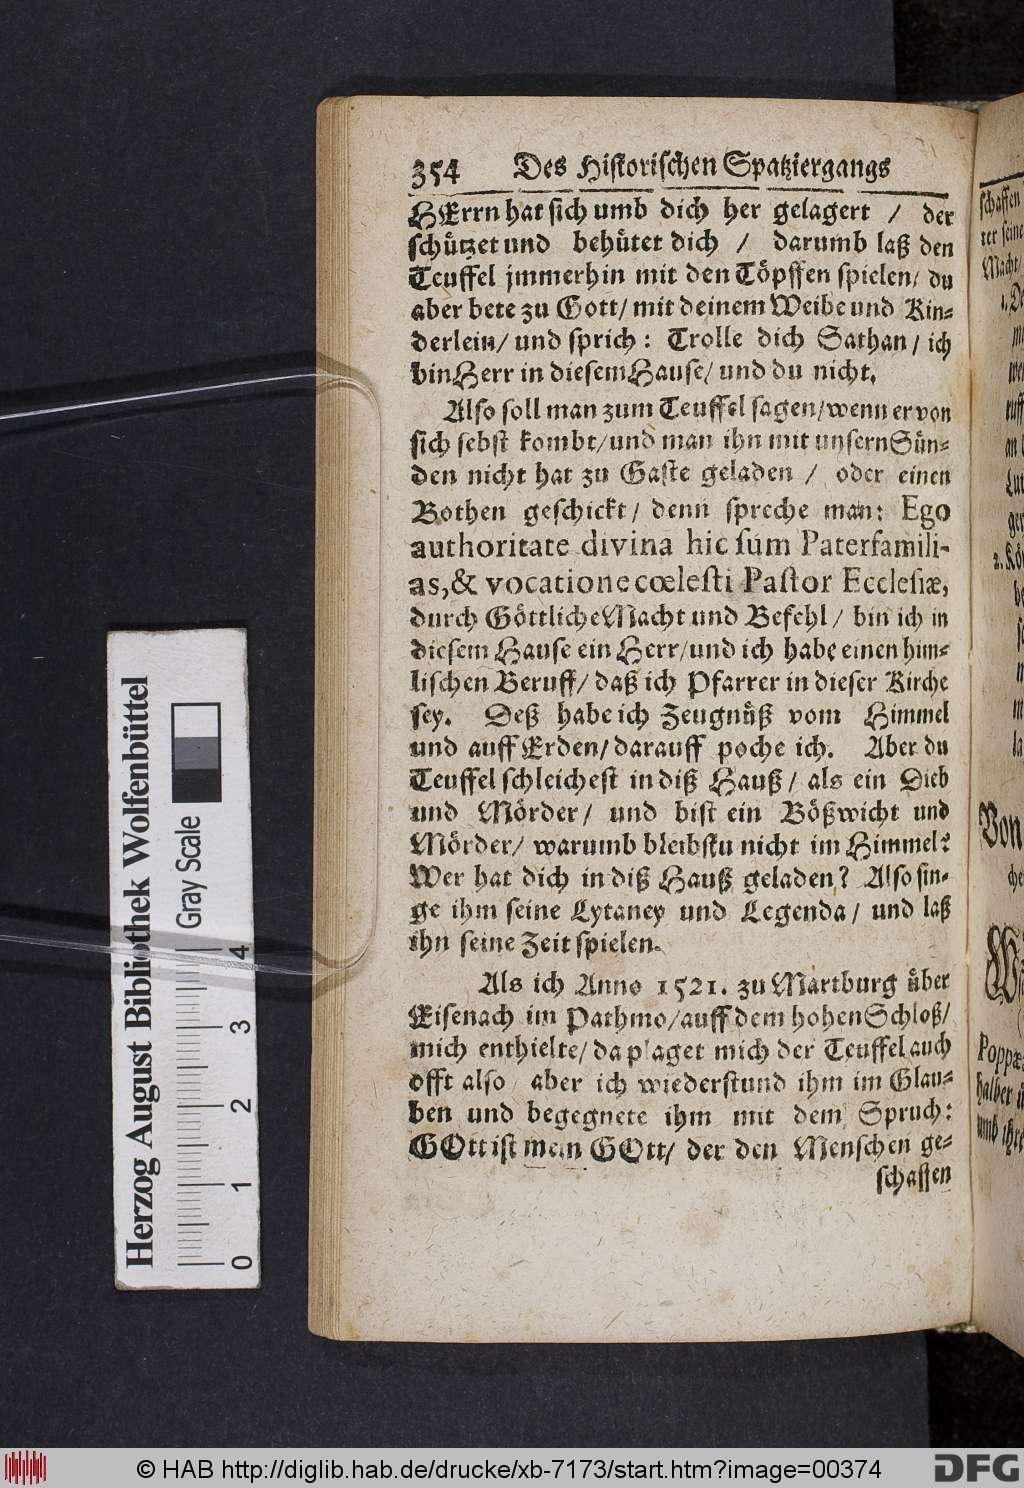 354 Des Historischen Spatziergangs
HErrn hat sich umb dich her gelagert / der
schützet und behütet dich / darumb laß den
Teuffel jmmerhin mit den Töpffen spielen/ du
aber bete zu Gott/ mit deinem Weibe und Kin-
derlein/ und sprich: Trolle dich Sathan/ ich
bin Herr in diesem Hause/ und du nicht.
Also soll man zum Teuffel sagen/wenn er von
sich sebst kombt/und man ihn mit unsern Sün-
den nicht hat zu Gaste geladen / oder einen
Bothen geschickt/ denn spreche man: Ego
authoritate divina hic sum Paterfamili-
as, & vocatione cœlesti Pastor Ecclesiæ,
durch Göttliche Macht und Befehl/ bin ich in
diesem Hause ein Herr/und ich habe einen him-
lischen Beruff/ daß ich Pfarrer in dieser Kirche
sey. Deß habe ich Zeugnüß vom Himmel
und auff Erden/darauff poche ich. Aber du
Teuffel schleichest in diß Hauß/ als ein Dieb
und Mörder/ und bist ein Bößwicht und
Mörder/ warumb bleibstu nicht im Himmel?
Wer hat dich in diß Hauß geladen? Also sin-
ge ihm seine Lytaney und Legenda/ und laß
ihn seine Zeit spielen.
Als ich Anno 1521. zu Martburg über
Eisenach im Pathmo/auff dem hohen Schloß/
mich enthielte/ da plaget mich der Teuffel auch
offt also/ aber ich wiederstund ihm im Glau-
ben und begegnete ihm mit dem Spruch:
GOtt ist mein GOtt/ der den Menschen ge-
schaffen
schaffen
Macht/
1. De
2. Kö
Von
halber
umb ihre
Herzog August Bibliothek Wolfenbüttel
Gray Scale
0 1 2 3 4
© HAB http://diglib.hab.de/drucke/xb-7173/start.htm?image=00374
DFG